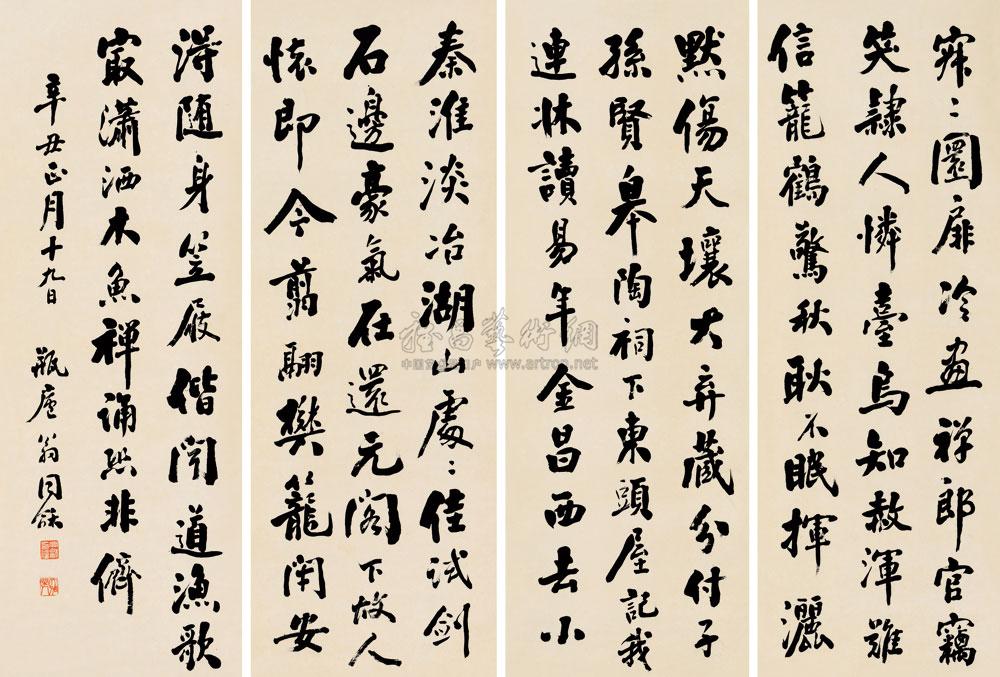 寂〻圜扉冷畫禅郎官竊
笑隸人憐臺烏知赦渾難
信籠鶴驚秋耿不眠揮灑
默傷天壤大弃藏分付子
孫賢皋陶祠下東頭屋記我
連牀讀易年金昌西去小
秦淮淡冶湖山處〻佳試劍
石邊豪氣在還元閣下故人
懷即今翦翮樊籠閑安
淂随身笠屐偕聞道漁歌
㝡瀟洒木魚禅誦恐非儕
辛丑正月十九日 瓶廬翁同龢
雅昌藝術網
www.artron.net